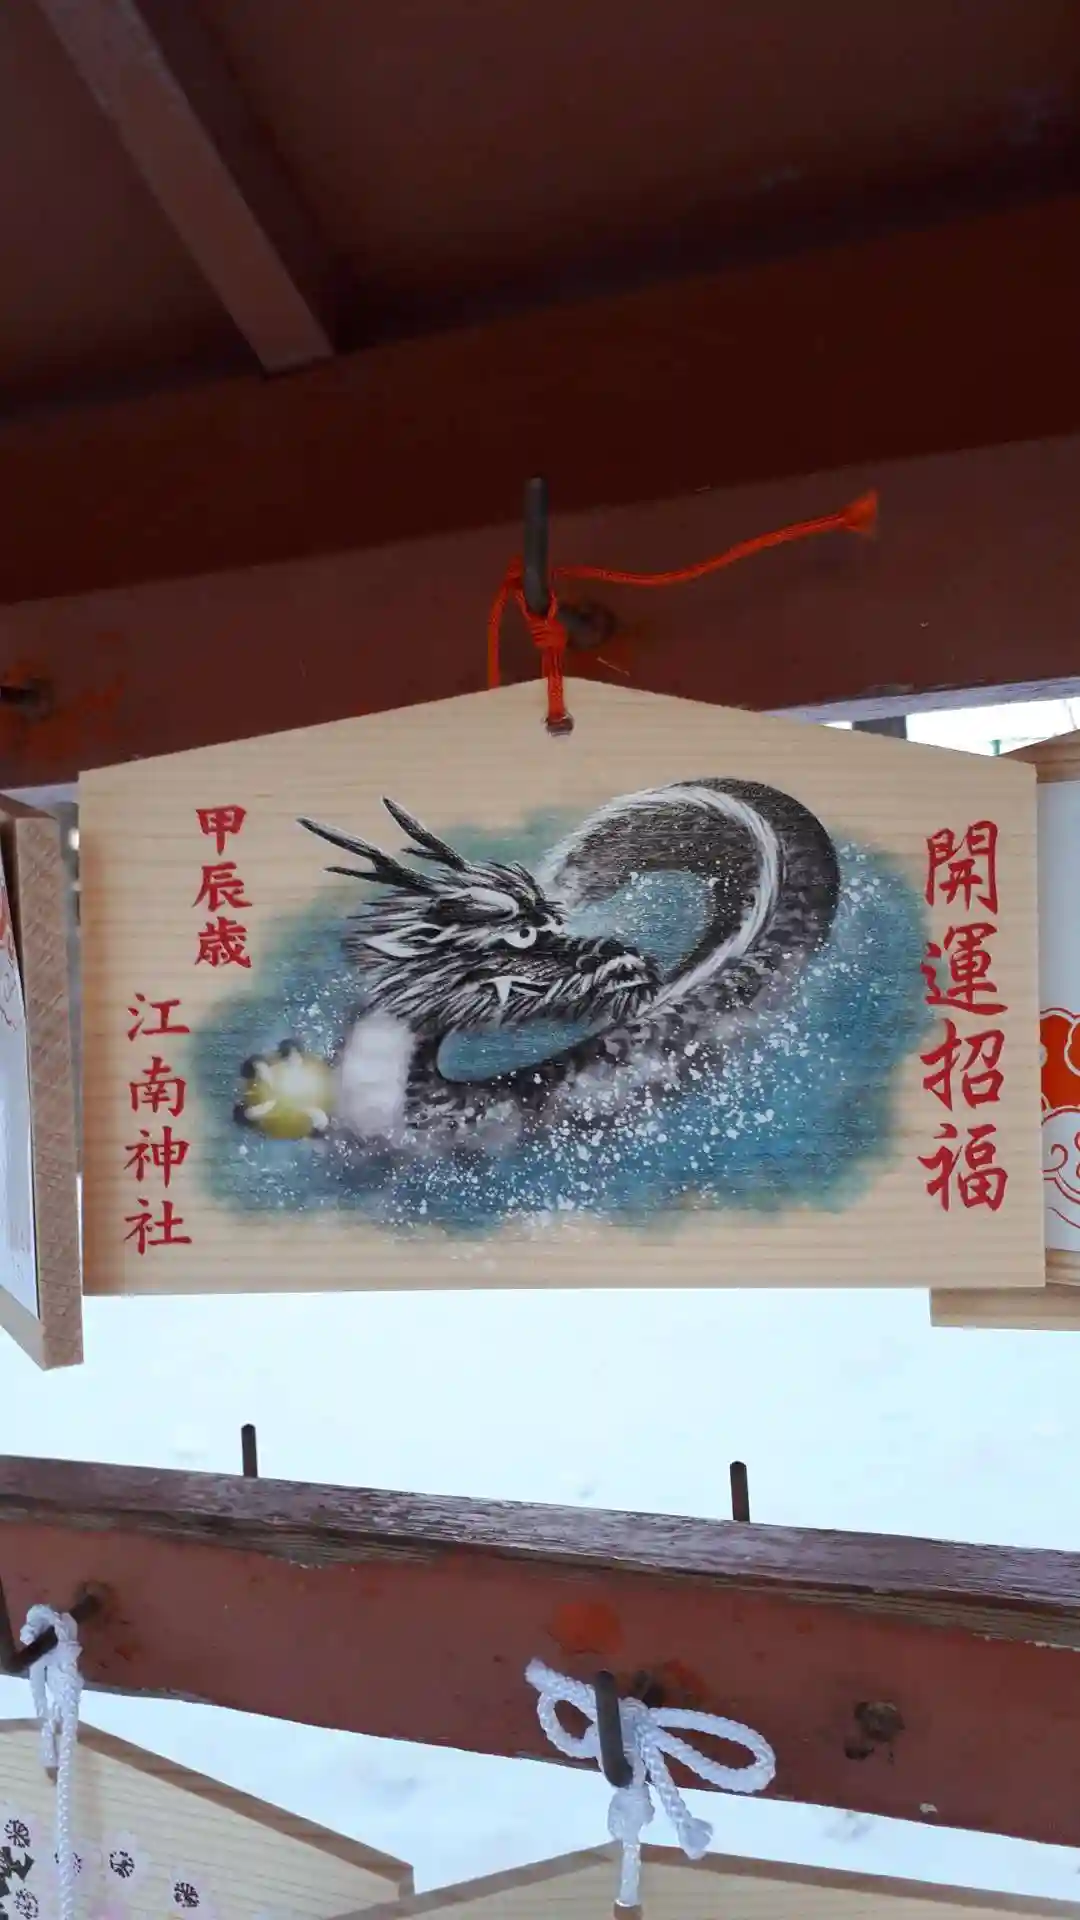 開運招福
甲辰歳
江南神社